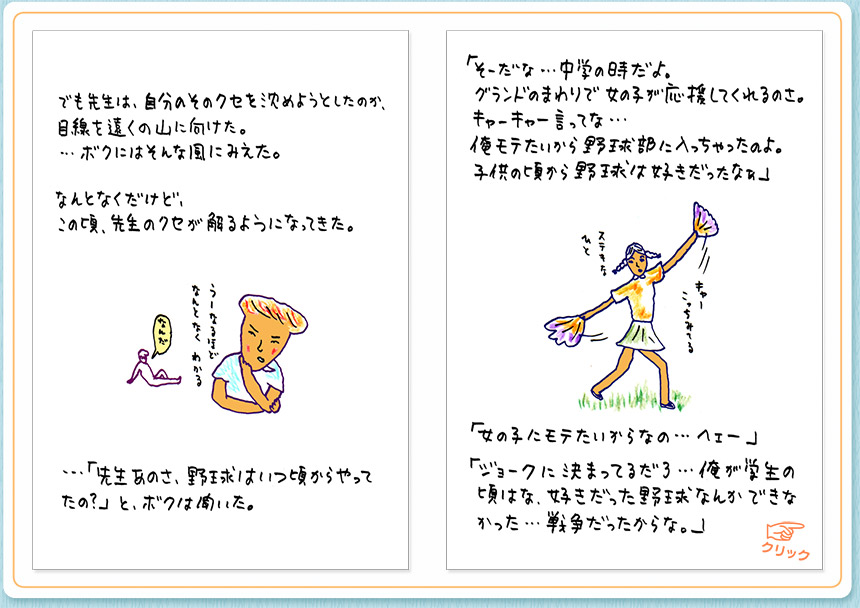 でも先生は、自分のそのクセを沈めようとしたのか、
目線を遠くの山に向けた。
…ボクにはそんな風にみえた。
なんとなくだけど、
この頃、先生のクセが解るようになってきた。
うーなるほど
なんとなく わかる
なんだ
…「先生あのさ、野球はいつ頃からやって
たの?」と、ボクは聞いた。
「そーだな…中学の時だよ。
グランドのまわりで女の子が応援してくれるのさ。
キャーキャー言ってな…
俺モテたいから野球部に入っちゃったのよ。
子供の頃から野球は好きだったなぁ」
ステキな
ひと
キャー
こっちみてる
「女の子にモテたいからなの…ヘェー」
「ジョークに決まってるだろ…俺が学生の
頃はな、好きだった野球なんかできな
かった…戦争だったからな。」
クリック